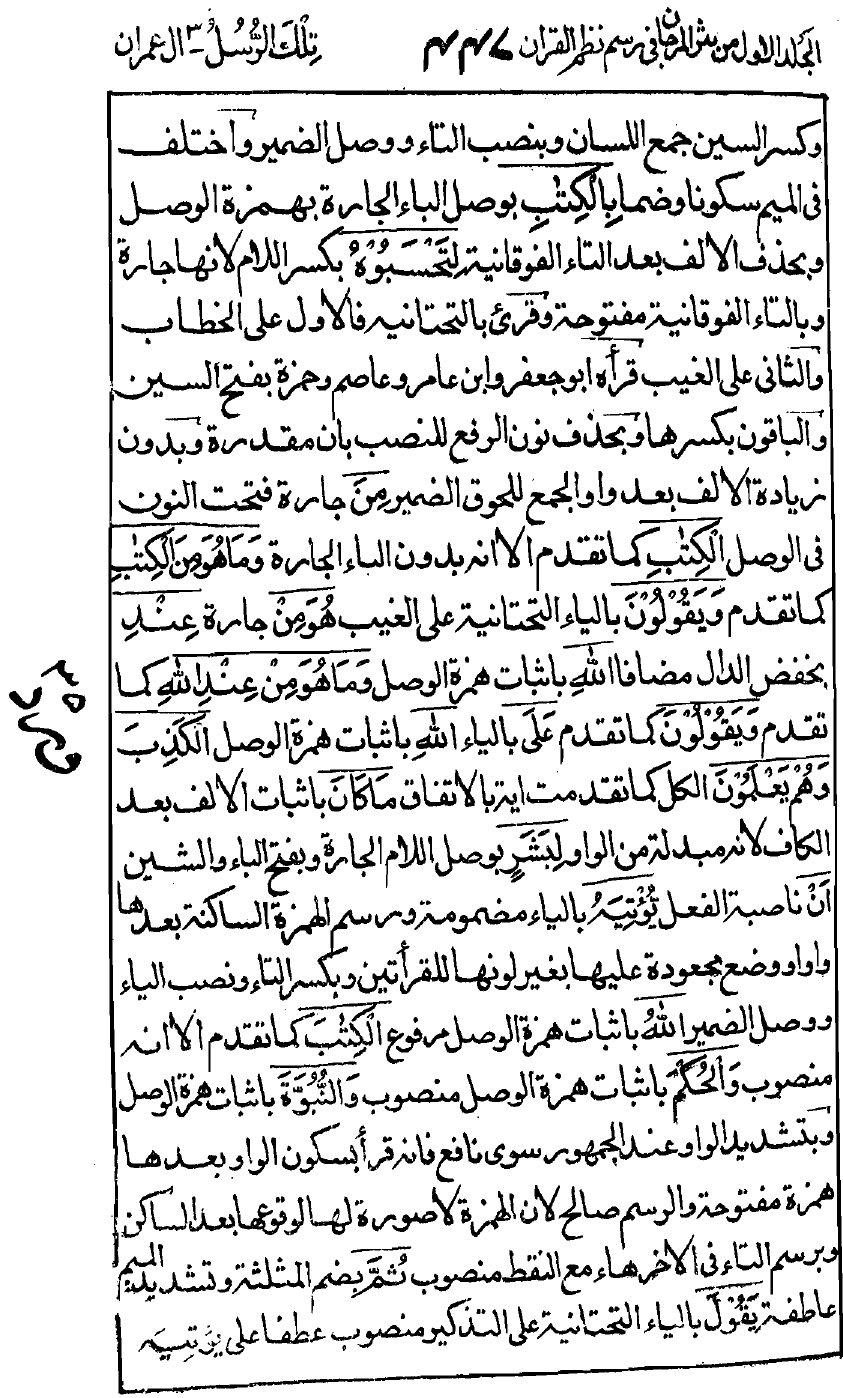 المجلد الاول من نثر المرجان فى رسم نظم القران ٤٤٧ تِلْكَ الرُّسُلُ ٣ - ال عمران
وكسر السين جمع اللسان وبنصب التاء ووصل الضمير واختلف
فى الميم سكونا وضما بِالْكِتٰبِ بوصل الباء الجارة بهمزة الوصل
وبحذف الالف بعد التاء الفوقانية لِتَحْسَبُوْهُ بكسر اللام لانها جارة
وبالتاء الفوقانية مفتوحة وقرئ بالتحتانية فالاول على الخطاب
والثانى على الغيب قرأه ابو جعفر وابن عامر وعاصم وحمزة بفتح السين
والباقون بكسرها وبحذف نون الرفع للنصب بان مقدرة وبدون
زيادة الالف بعد واو الجمع للحوق الضمير مِنَ جارة فتحت النون
فى الوصل الْكِتٰبِ كما تقدم الا انه بدون الباء الجارة وَمَا هُوَ مِنَ الْكِتٰبِ
كما تقدم وَيَقُوْلُوْنَ بالياء التحتانية على الغيب هُوَ مِنْ جارة عِنْدِ
بخفض الدال مضافا اللهِ باثبات همزة الوصل وَمَا هُوَ مِنْ عِنْدِ اللهِ كما
تقدم وَيَقُوْلُوْنَ كما تقدم عَلَى بالياء اللهِ باثبات همزة الوصل الْكَذِبَ
وَهُمْ يَعْلَمُوْنَ الكل كما تقدمت اية بالاتفاق مَا كَانَ باثبات الالف بعد
الكاف لانه مبدلة من الواو لِبَشَرٍ بوصل اللام الجارة وبفتح الباء والشين
اَنْ ناصبة الفعل يُؤْتِيَهُ بالياء مضمومة ورسم الهمزة الساكنة بعدها
واوا ووضع مجعودة عليها بغير لونها للقرأتين وبكسر التاء ونصب الياء
ووصل الضمير اللهُ باثبات همزة الوصل مرفوع الْكِتٰبَ كما تقدم الا انه
منصوب وَالْحُكْمَ باثبات همزة الوصل منصوب وَالنُّبُوَّةَ باثبات همزة الوصل
وبتشديد الواو عند الجمهور سوى نافع فانه قرأ بسكون الواو بعدها
همزة مفتوحة والرسم صالح لان الهمزة لا صورة لها لوقوعها بعد الساكن
وبرسم التاء فى الاخر هاء مع النقط منصوب ثُمَّ بضم المثلثة وتشديد الميم
عاطفة يَقُوْلَ بالياء التحتانية على التذكير منصوب عطفا على يؤتيه